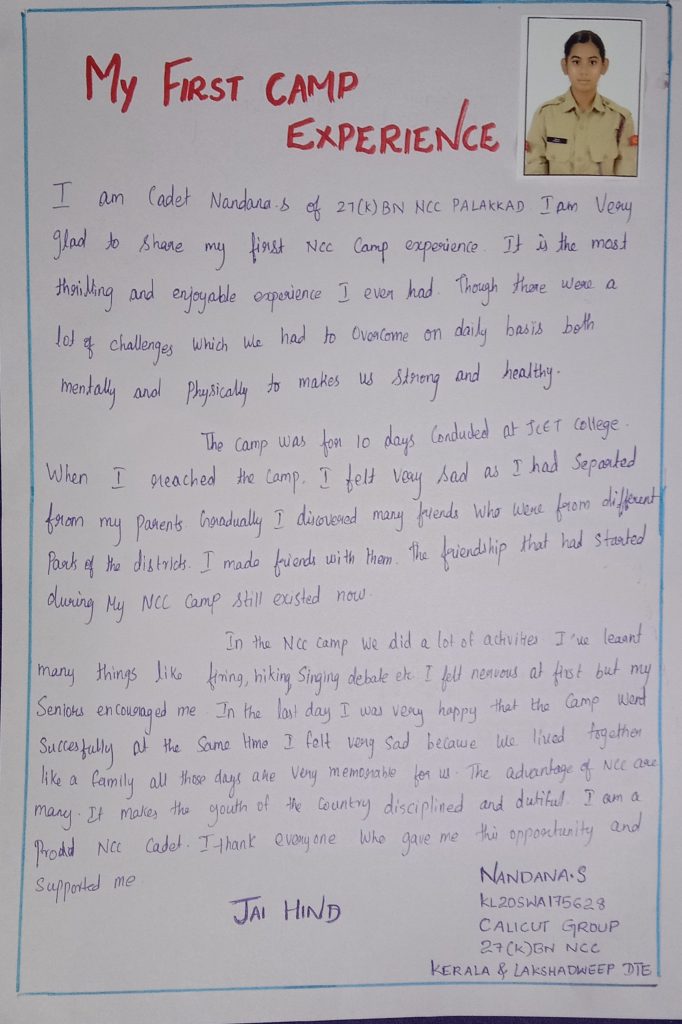 My First Camp
Experience
I am Cadet Nandana.s of 27(K)BN NCC PALAKKAD. I am Very
glad to share my first NCC Camp experience. It is the most
thrilling and enjoyable experience I ever had. Though there were a
lot of challenges which we had to overcome on daily basis both
mentally and Physically to makes us strong and healthy.
The camp was for 10 days Conducted at JCET College.
When I reached the camp. I felt very sad as I had Separted
from my Parents. Gradually I discovered many friends who were from different
Park of the districts. I made friends with them. The friendship that had started
during My NCC Camp still existed now.
In the NCC camp we did a lot of activities I've learnt
many things like firing, hiking, Singing debate etc. I felt nervous at first but my
Seniors encouraged me. In the last day I was very happy that the Camp Went
Succesfully at the Same time I felt very Sad because We lived together
like a family all those days are Very memorable for us. The advantage of NCC are
many. It makes the youth of the Country disciplined and dutiful. I am a
Proud NCC Cadet. I thank everyone who gave me this opportunity and
Supported me
JAI HIND
NANDANA.S
KL20SWA175628
CALICUT GROUP
27(K)BN NCC
KERALA & LAKSHADWEEP DTE